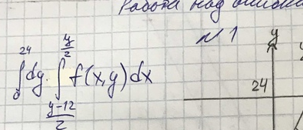 Работа над ошибками
№1
∫₀²⁴ dy · ∫_{(y-12)/2}^{y/2} f(x,y)dx
y
24